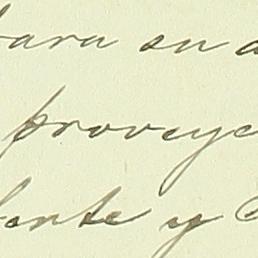 para su a
proveyc
fante y